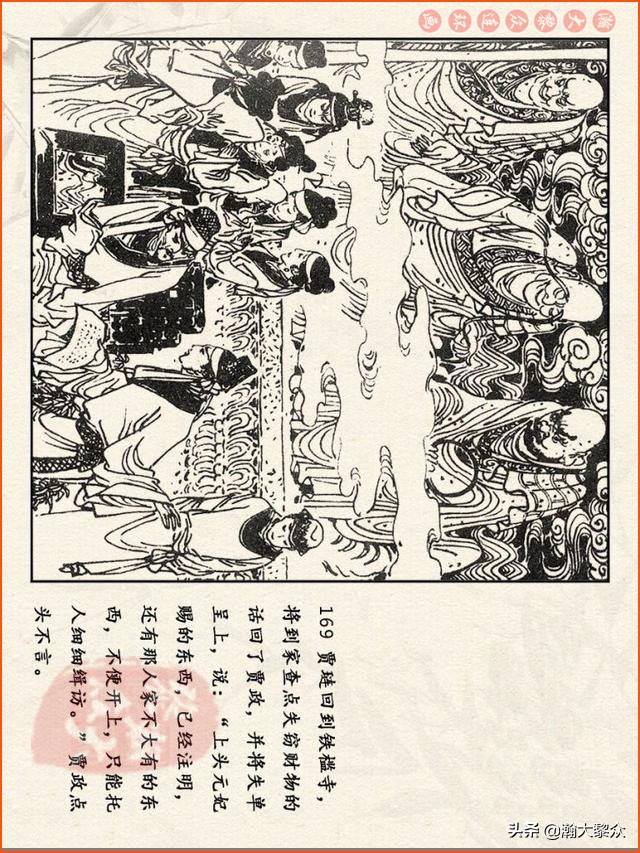 瀚大黎众连环画
169 贾琏回到铁槛寺，
将到家查点失窃财物的
话回了贾政，并将失单
呈上，说：“上头元妃
赐的东西，已经注明，
还有那人家不大有的东
西，不便开上，只能托
人细细缉访。”贾政点
头不言。
头条 @瀚大黎众